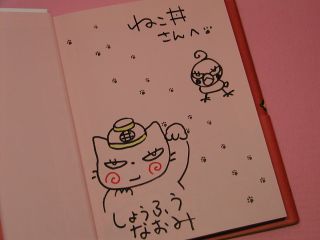 ねこ井
さんへ
しょうふう
なおみ